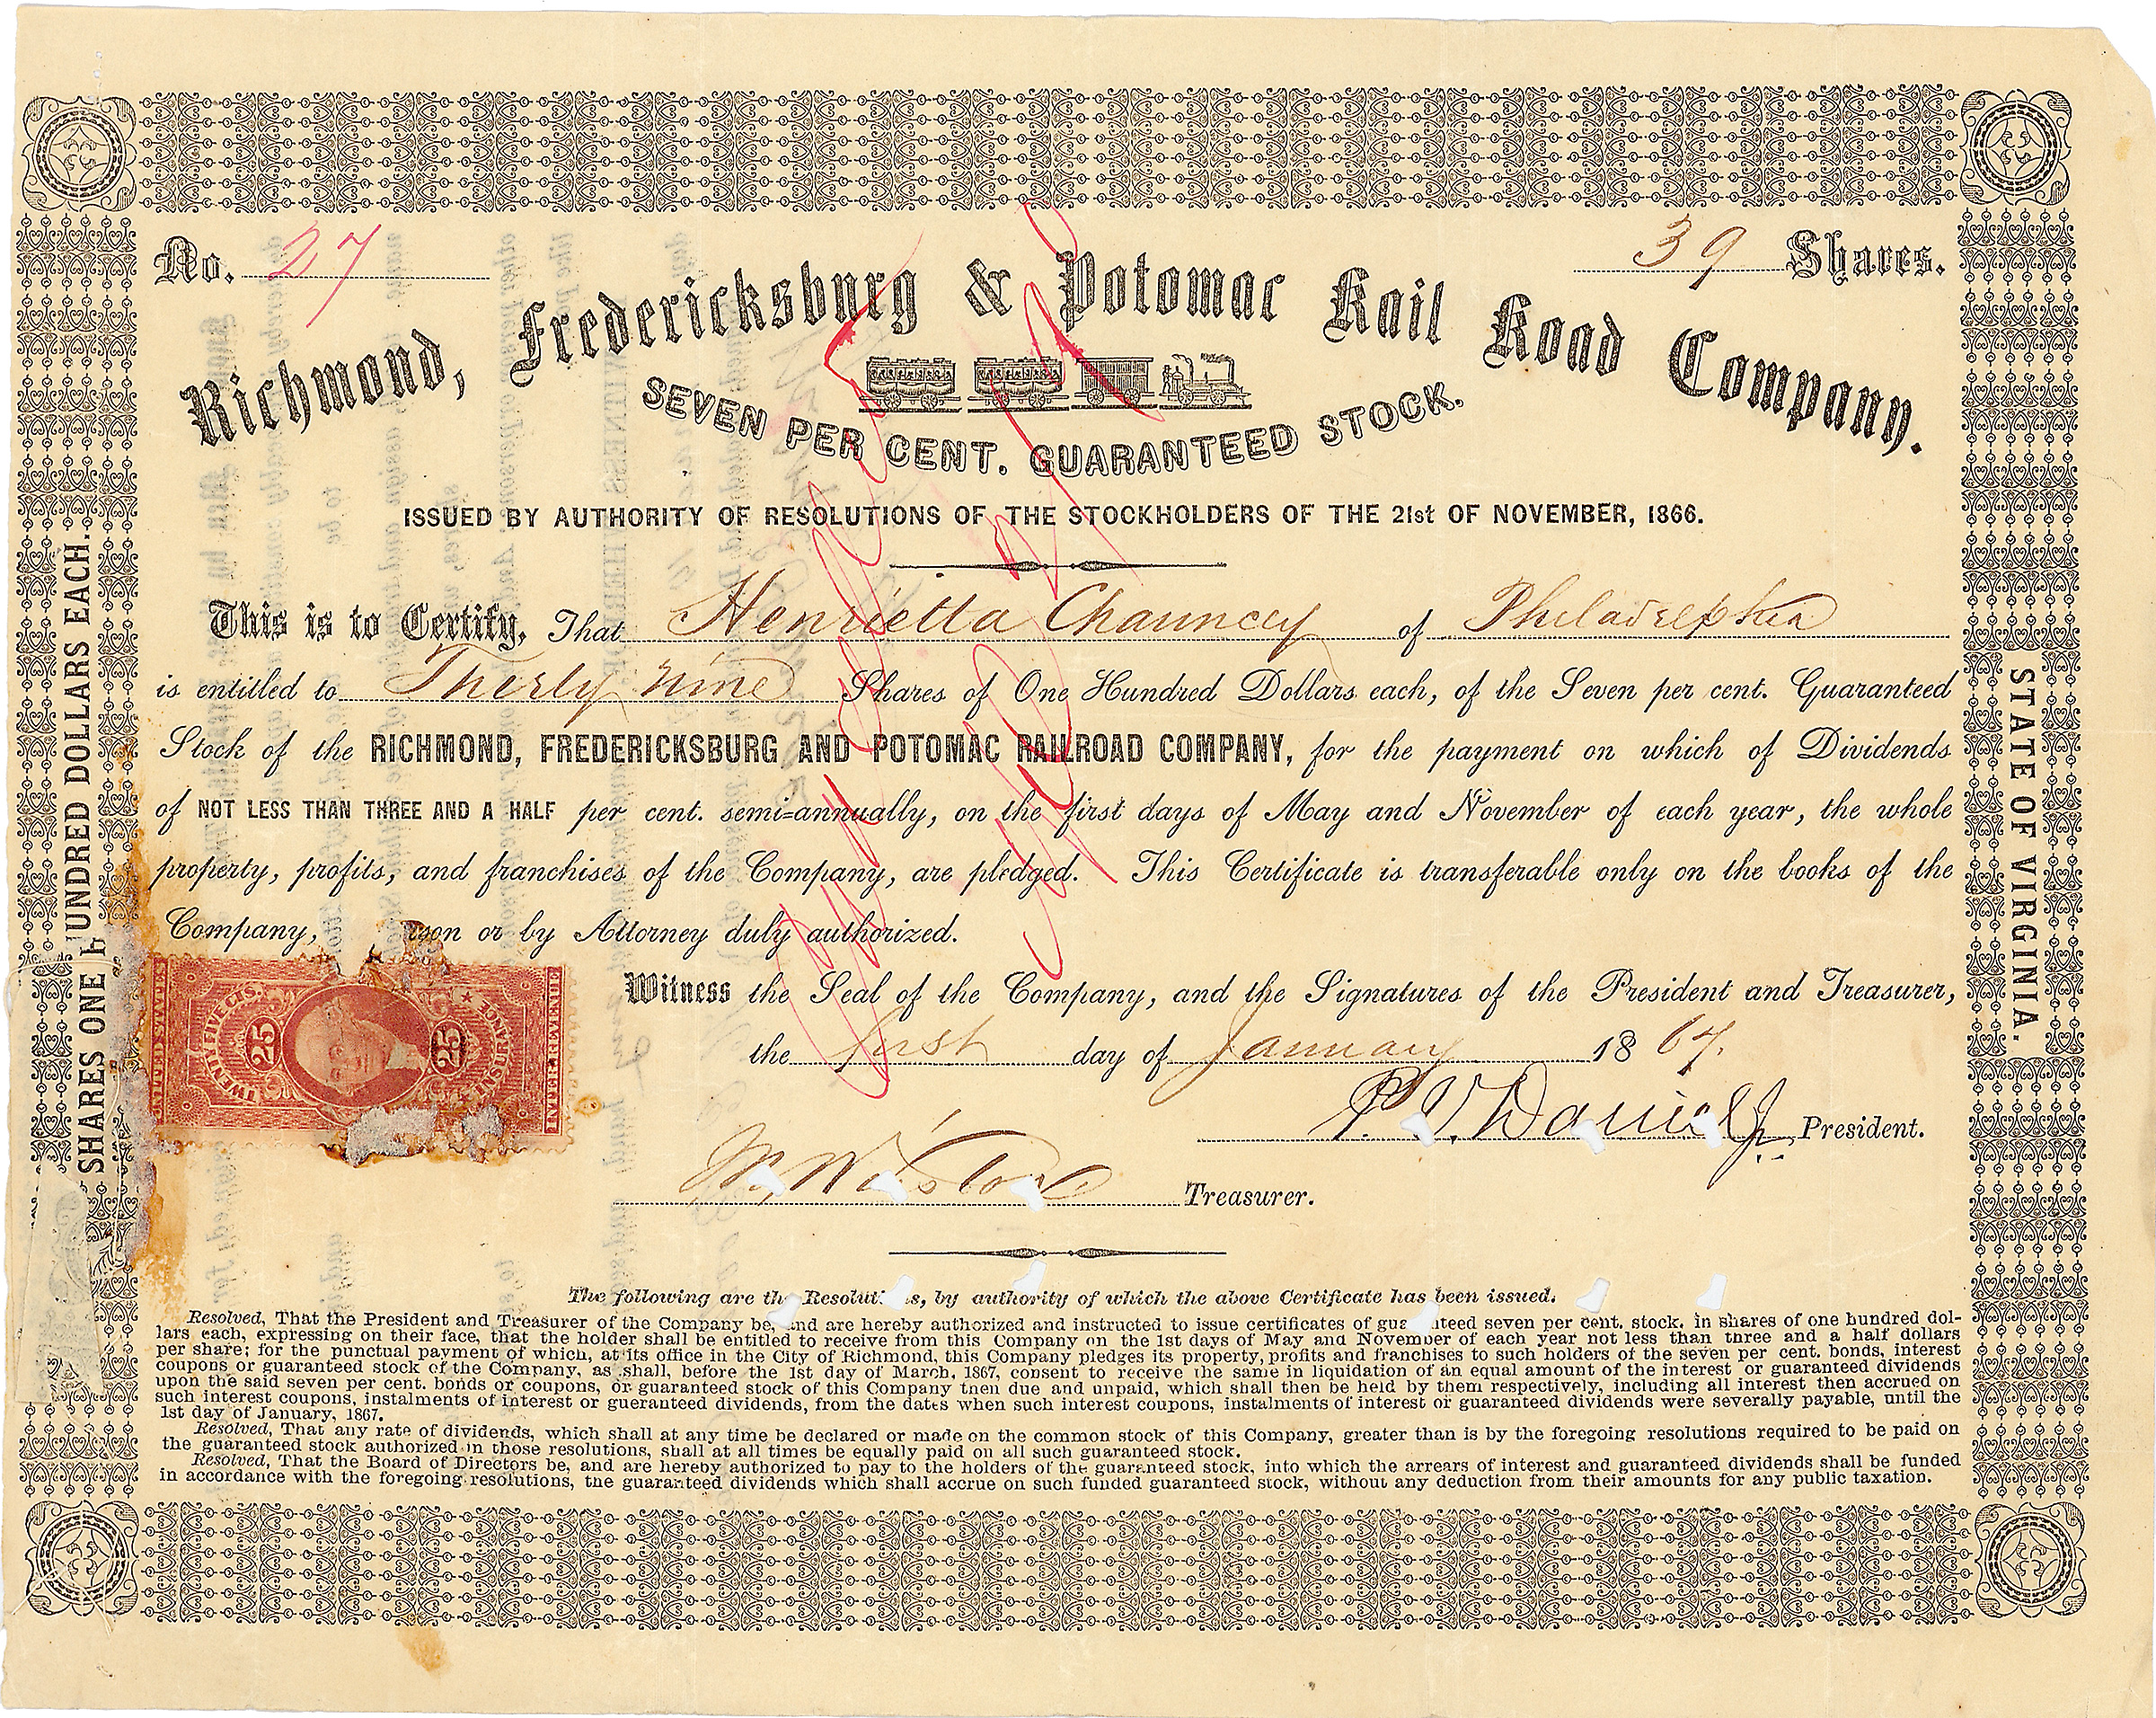 No. 27
39 Shares.
Richmond, Fredericksburg & Potomac Rail Road Company.
SEVEN PER CENT. GUARANTEED STOCK.
ISSUED BY AUTHORITY OF RESOLUTIONS OF THE STOCKHOLDERS OF THE 21st OF NOVEMBER, 1866.
This is to Certify, That Henrietta Chauncey of Philadelphia
is entitled to Thirty nine Shares of One Hundred Dollars each, of the Seven per cent. Guaranteed
Stock of the RICHMOND, FREDERICKSBURG AND POTOMAC RAILROAD COMPANY, for the payment on which of Dividends
of NOT LESS THAN THREE AND A HALF per cent. semi-annually, on the first days of May and November of each year, the whole
property, profits, and franchises of the Company, are pledged. This Certificate is transferable only on the books of the
Company, or by Attorney duly authorized.
Witness the Seal of the Company, and the Signatures of the President and Treasurer,
the first day of January 1867.
P. V. Daniel Jr. President.
Treasurer.
SHARES ONE HUNDRED DOLLARS EACH.
STATE OF VIRGINIA.
UNITED STATES
TWENTY FIVE CTS.
25 25
INSURANCE
INTER. REVENUE
The following are the Resolutions, by authority of which the above Certificate has been issued.
Resolved, That the President and Treasurer of the Company be, and are hereby authorized and instructed to issue certificates of guaranteed seven per cent. stock. in shares of one hundred dol-
lars each, expressing on their face, that the holder shall be entitled to receive from this Company on the 1st days of May and November of each year not less than three and a half dollars
per share; for the punctual payment of which, at its office in the City of Richmond, this Company pledges its property, profits and franchises to such holders of the seven per cent. bonds, interest
coupons or guaranteed stock of the Company, as shall, before the 1st day of March, 1867, consent to receive the same in liquidation of an equal amount of the interest or guaranteed dividends
upon the said seven per cent. bonds or coupons, or guaranteed stock of this Company then due and unpaid, which shall then be held by them respectively, including all interest then accrued on
such interest coupons, instalments of interest or gueranteed dividends, from the dates when such interest coupons, instalments of interest or guaranteed dividends were severally payable, until the
1st day of January, 1867.
Resolved, That any rate of dividends, which shall at any time be declared or made on the common stock of this Company, greater than is by the foregoing resolutions required to be paid on
the guaranteed stock authorized in those resolutions, shall at all times be equally paid on all such guaranteed stock.
Resolved, That the Board of Directors be, and are hereby authorized to pay to the holders of the guaranteed stock, into which the arrears of interest and guaranteed dividends shall be funded
in accordance with the foregoing resolutions, the guaranteed dividends which shall accrue on such funded guaranteed stock, without any deduction from their amounts for any public taxation.